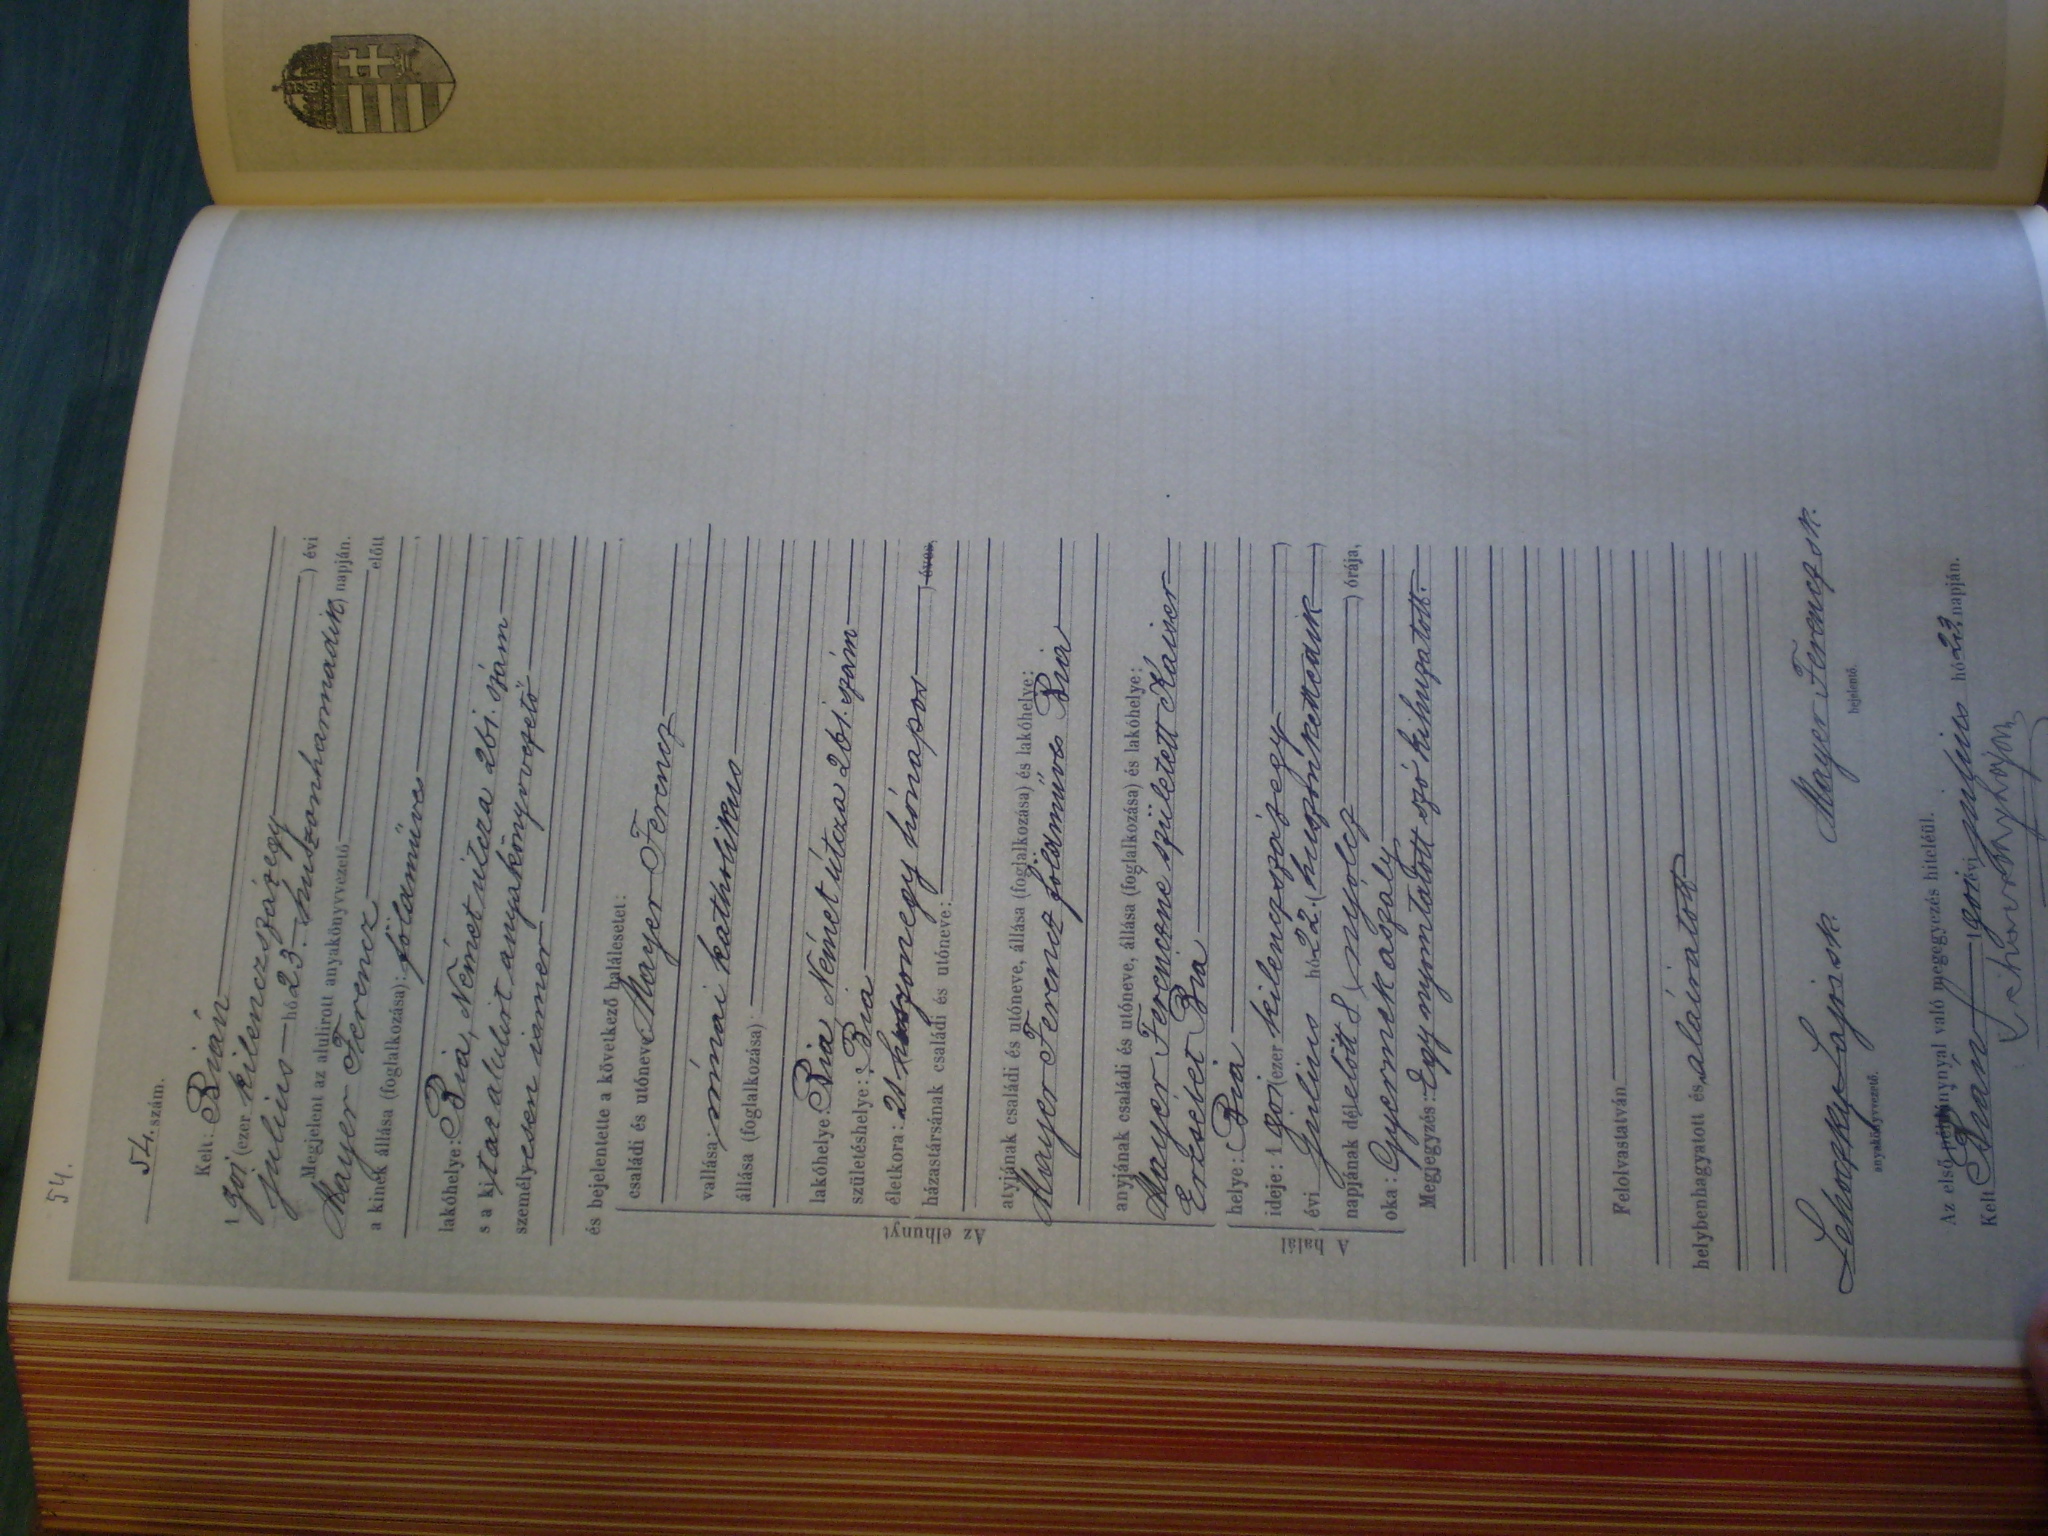 54.
54. szám.
Kelt: Bián
1901 (ezer kilenczszázegy) évi
julius hó 23. huszonharmadik) napján.
Megjelent az alulirott anyakönyvvezető előtt
Mayer Ferencz
a kinek állása (foglalkozása): földmüves
lakóhelye: Bia, Német utcza 261. szám
s a kit az alulirt anyakönyvvezető
személyesen ismer
és bejelentette a következő halálesetet:
Az elhunyt
családi és utóneve Mayer Ferencz
vallása: római katholikus
állása (foglalkozása):
lakóhelye: Bia, Német útcza 261. szám
születéshelye: Bia
életkora: 21 (huszonegy hónapos) éves,
házastársának családi és utóneve:
atyjának családi és utóneve, állása (foglalkozása) és lakóhelye:
Mayer Ferencz földműves Bia
anyjának családi és utóneve, állása (foglalkozása) és lakóhelye:
Mayer Ferenczne született Kaiser
Erzsébet Bia
A halál
helye: Bia
ideje: 1901 (ezer kilenczszázegy)
évi Julius hó 22. (huszonkettedik)
napjának délelőtt 8 (nyolcz) órája,
oka: Gyermek aszály
Megjegyzés: Egy nyomtatott szó kihuzatott.
Felolvastatván
helybenhagyatott és aláiratott
Lehoczky Lajos sk. Mayer Ferencz sk.
anyakönyvvezető. bejelentő.
Az első példánynyal való megegyezés hiteléül.
Kelt Bián 1901 évi julius hó 23. napján.